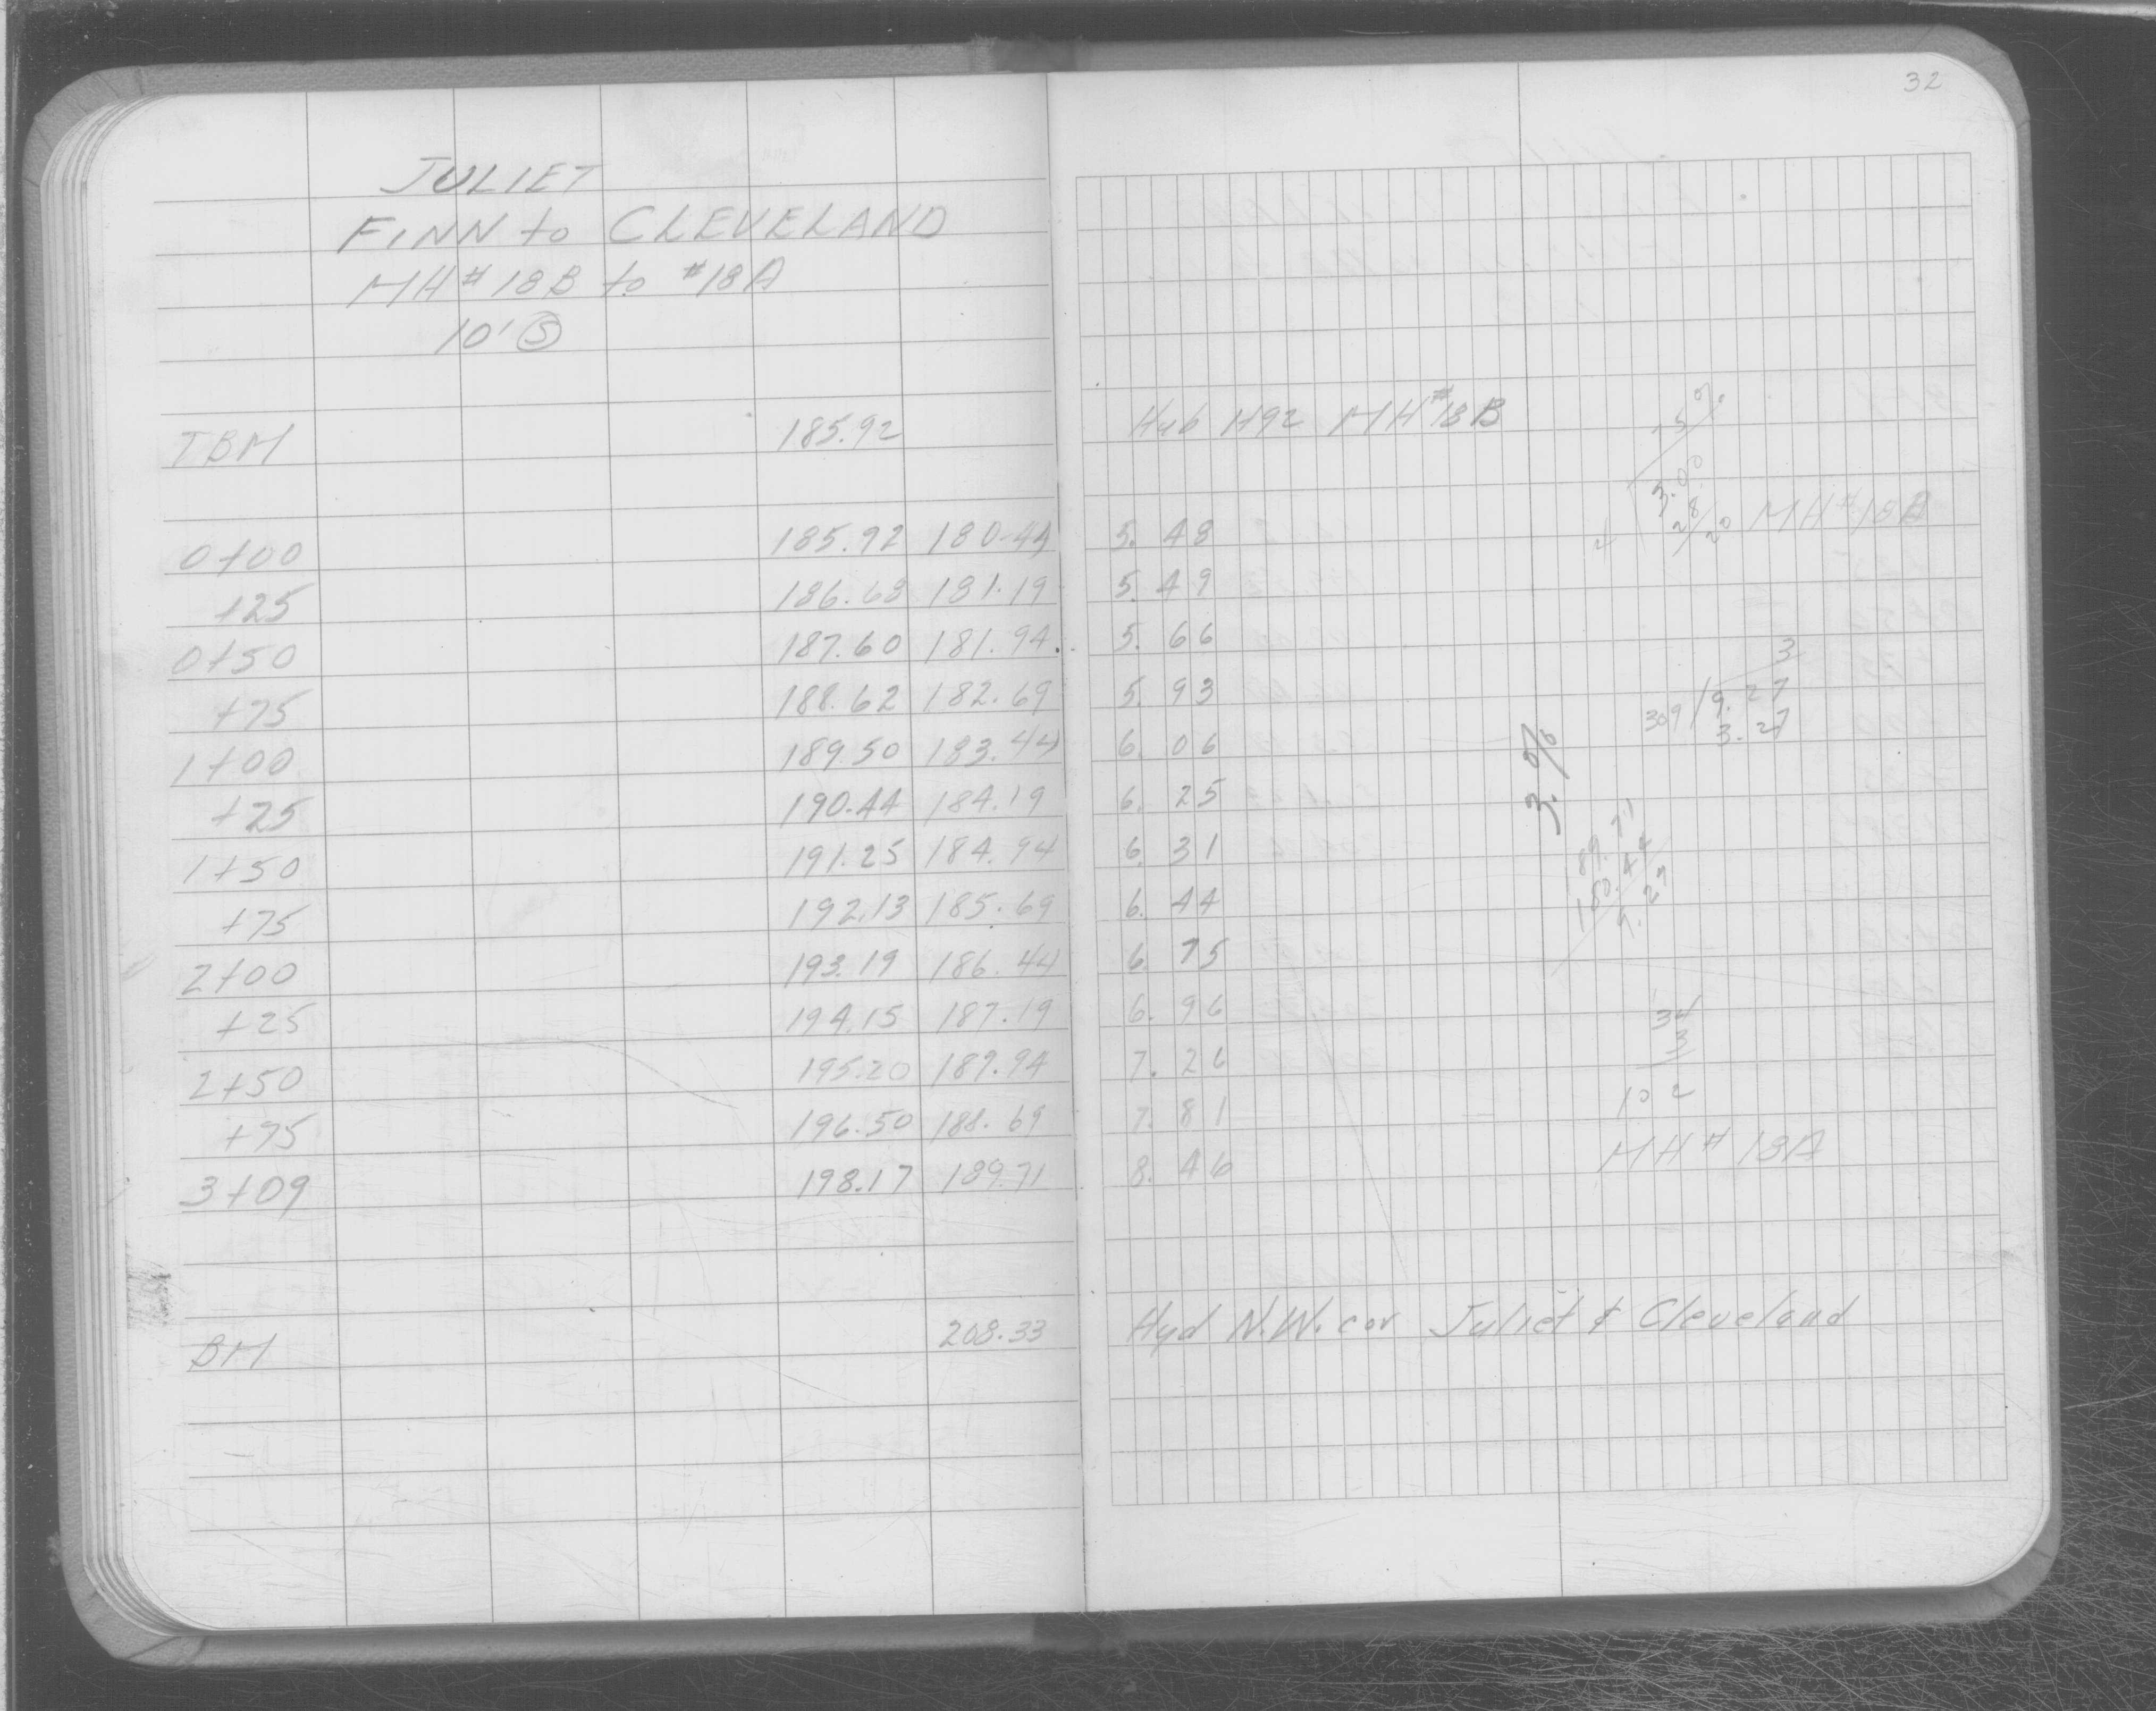 32
JULIET
FINN to CLEVELAND
MH# 18B to #18A
10' Ⓢ
TBM 185.92 Hub H92 MH#18B
0+00 185.92 180.44 5.48 MH#18B
+25 186.68 181.19 5.49
0+50 187.60 181.94 5.66
+75 188.62 182.69 5.93
1+00 189.50 183.44 6.06
+25 190.44 184.19 6.25
1+50 191.25 184.94 6.31
+75 192.13 185.69 6.44
2+00 193.19 186.44 6.75
+25 194.15 187.19 6.96
2+50 195.20 187.94 7.26
+75 196.50 188.69 7.81
3+09 198.17 189.71 8.46 MH# 18A
BM 208.33 Hyd N.W. cor Juliet & Cleveland
3
309 / 9.27
3.27
3.%
189.71
180.44
9.27
34
3
102